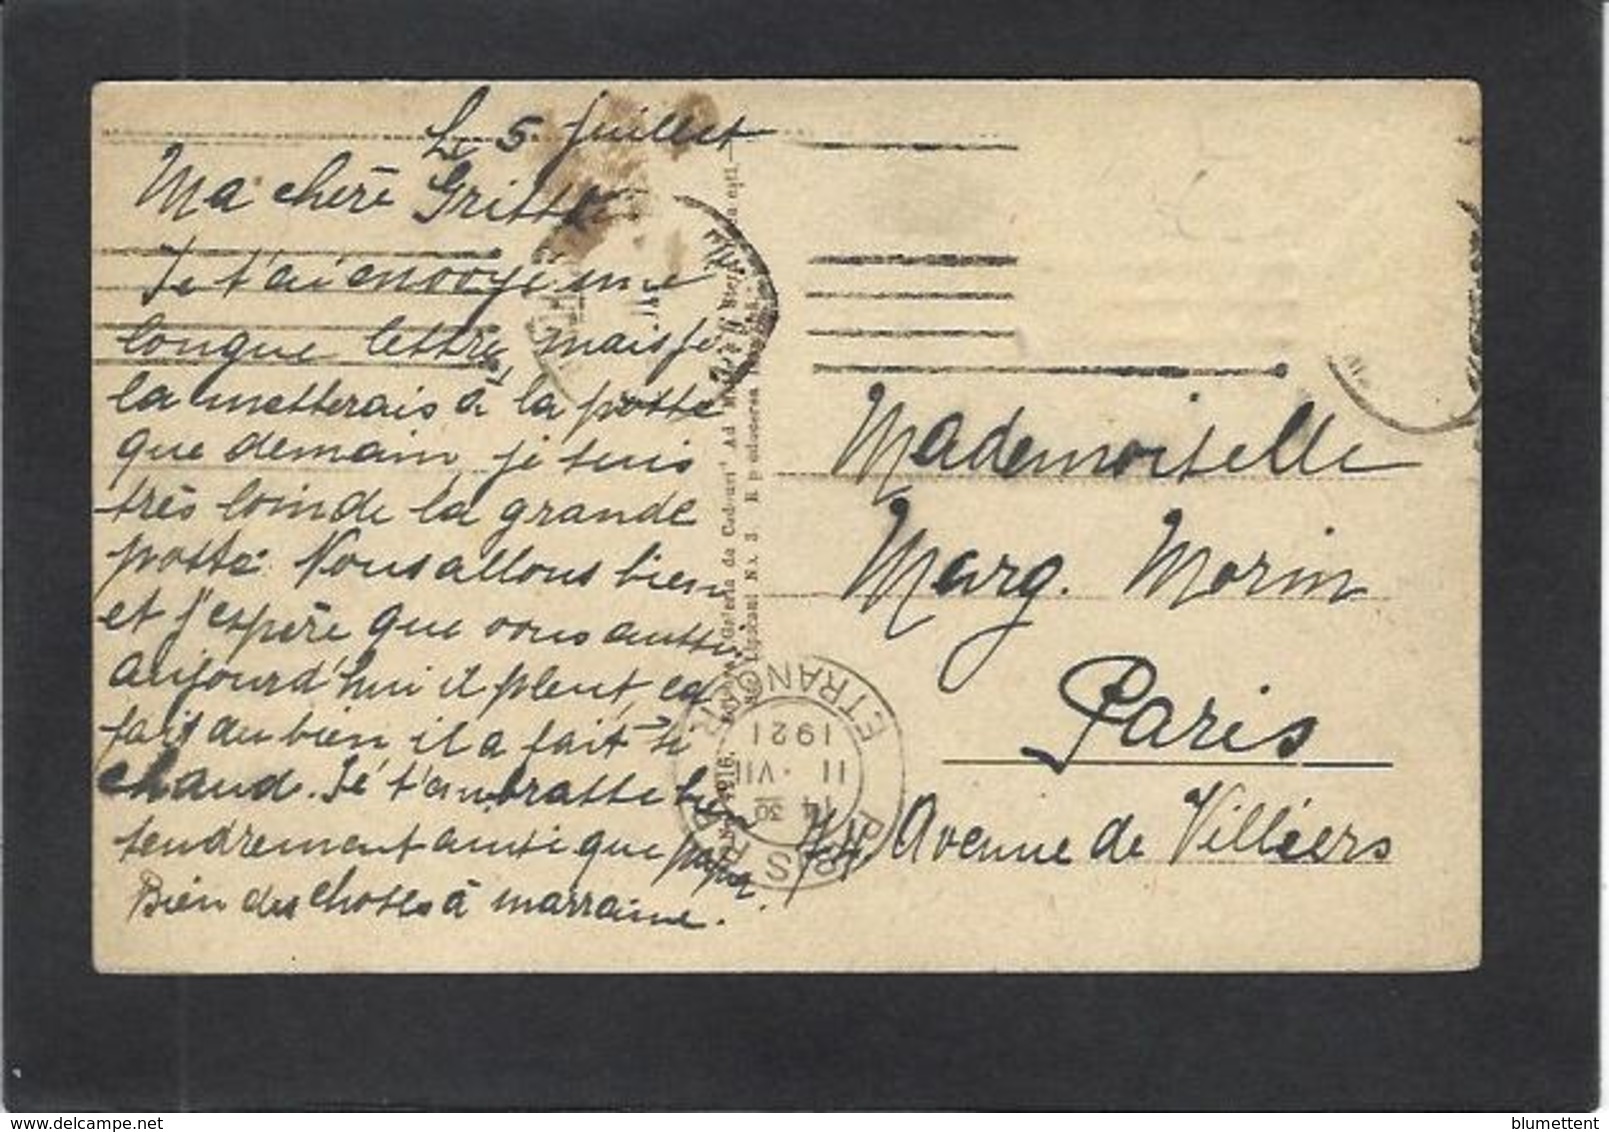 Le 5 Juillet
Ma chère Gritte
Je t'ai envoyé une
longue lettre, mais je
la metterais à la poste
que demain, je suis
très loin de la grande
poste. Nous allons bien
et j'espère que vous aussi.
aujourd'hui il pleut, ca
fait du bien il a fait si
chaud. Je t'embrasse bien
tendrement ainsi que papa.
Bien des choses à marraine.
Galeria de Cadouri" Ad
No. 3.
1916.
Mademoiselle
Marg. Morin
Paris
Avenue de Villiers
PARIS ETRANGER
14 30
11 · VII
1921
blumettent